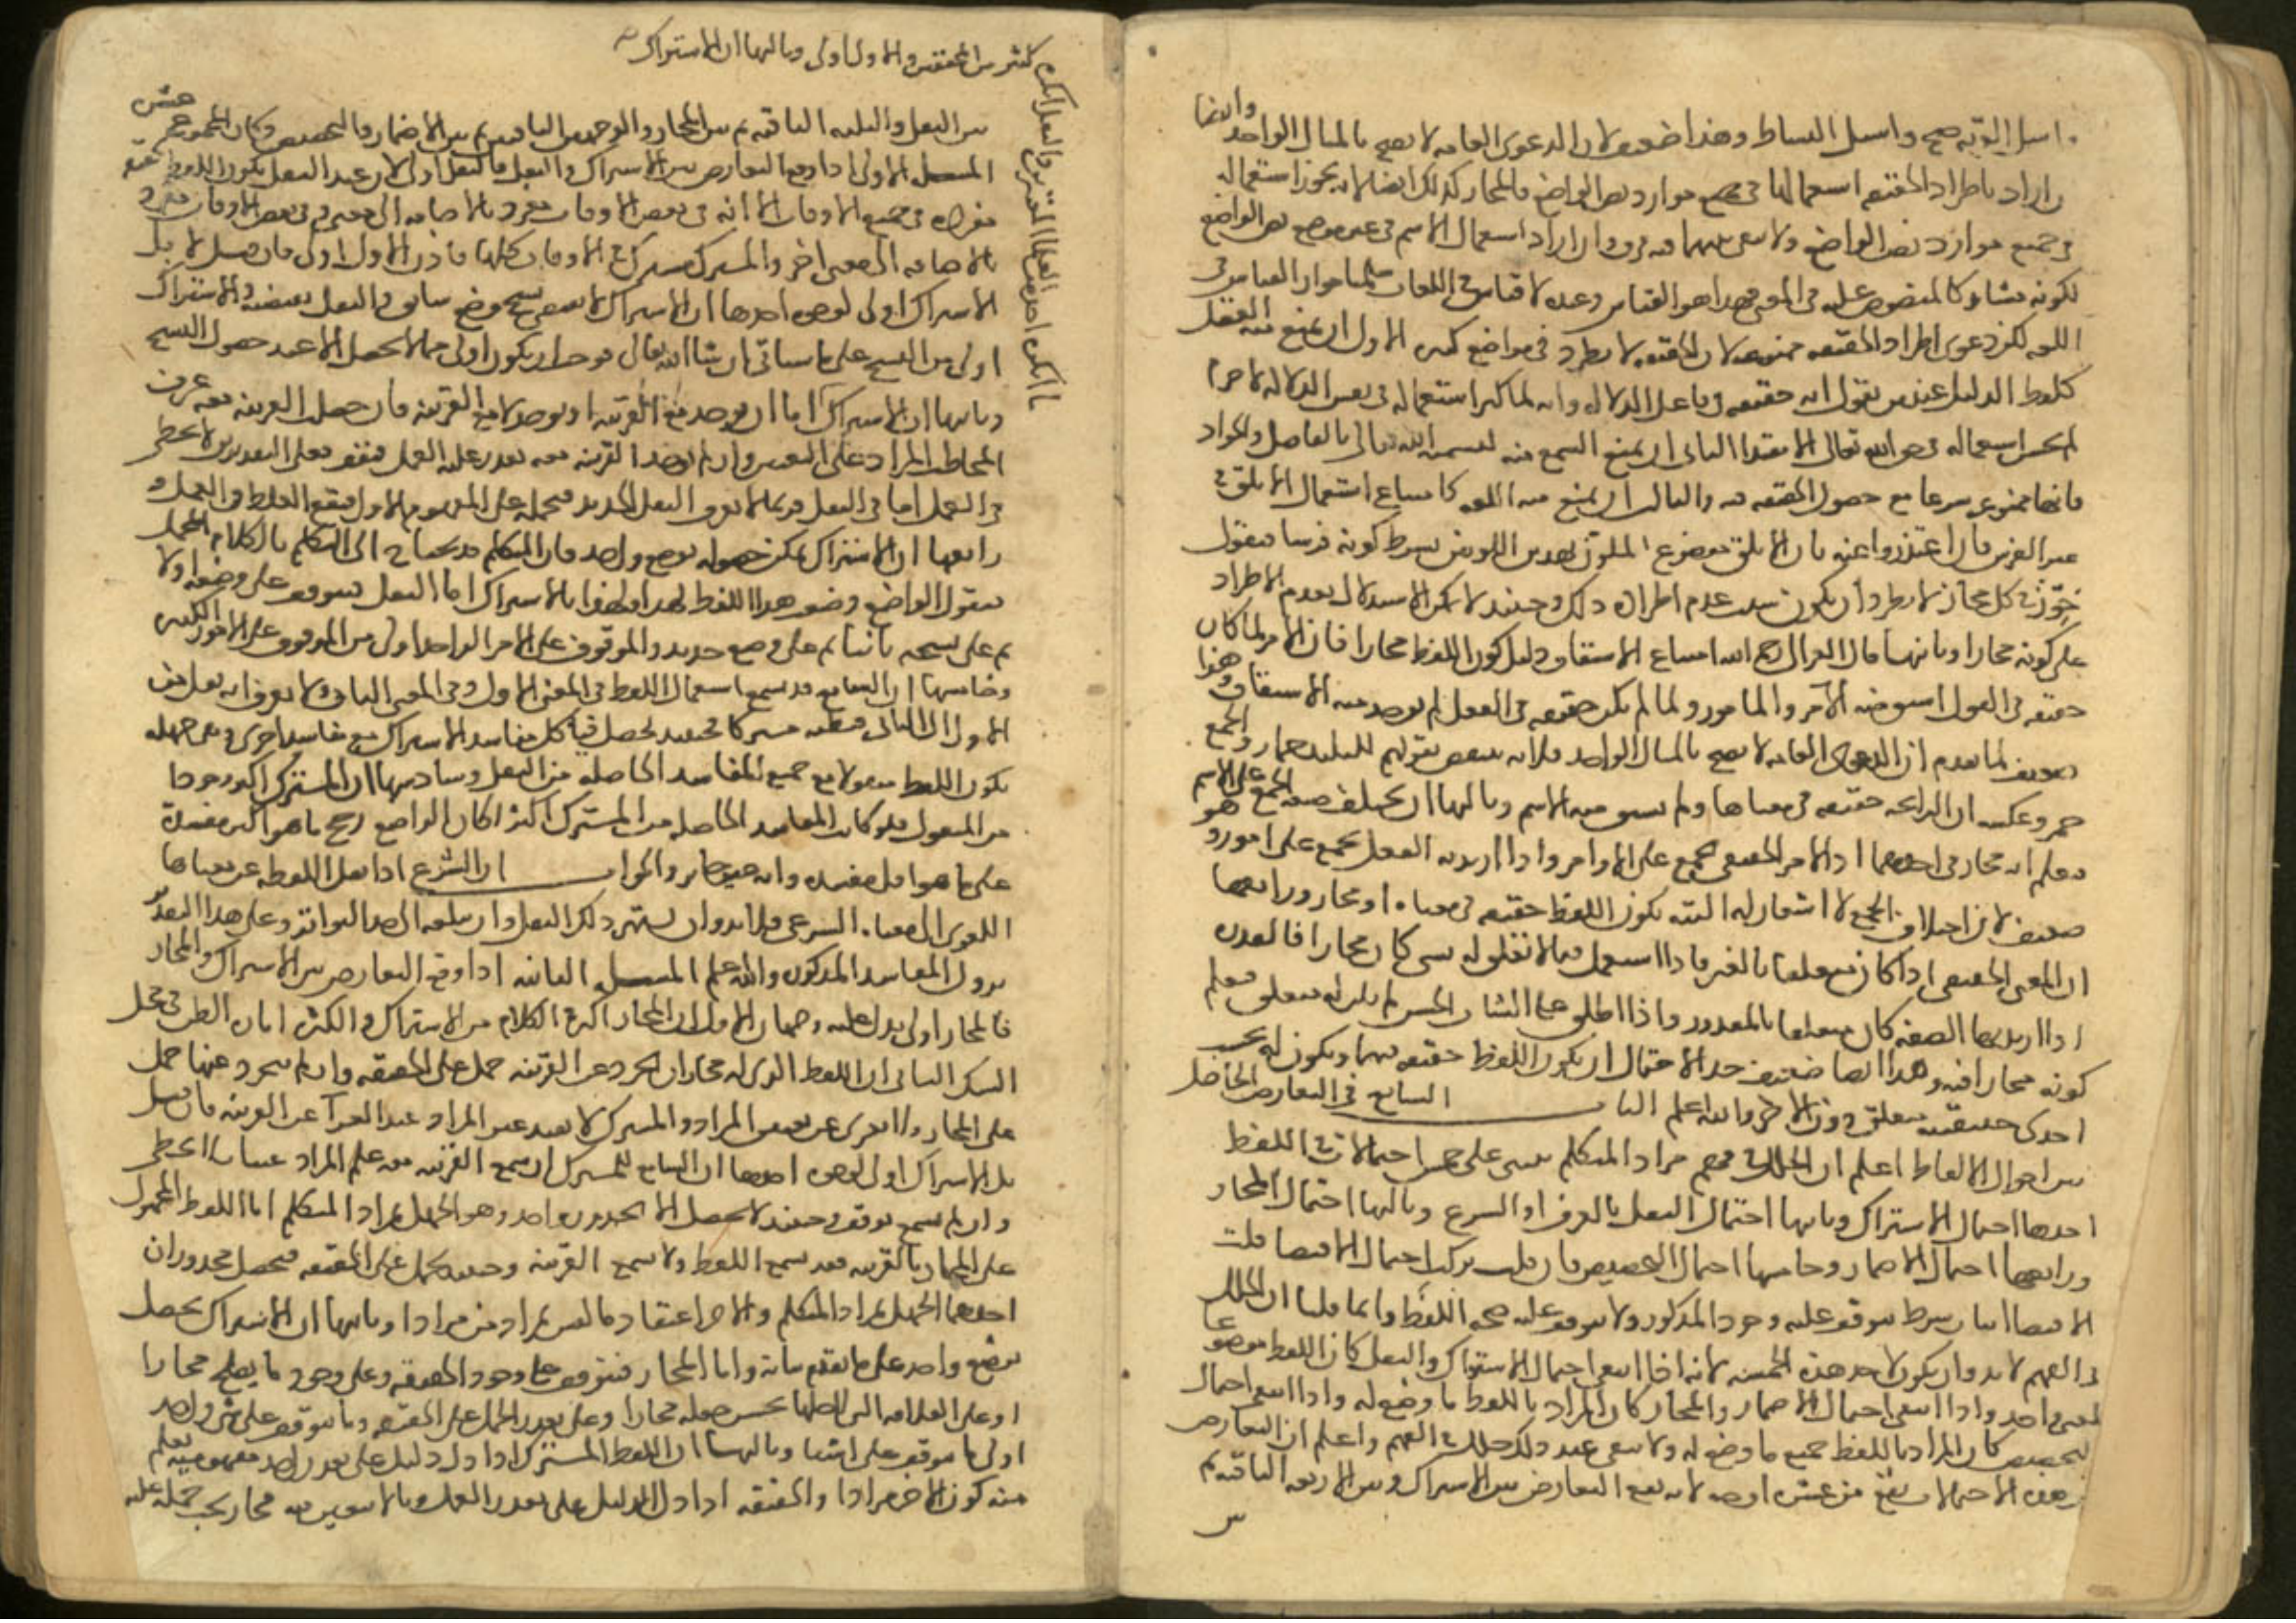 واسل القرية صحيح واسل البساط وهذا ضعيف لان الدعوى العامه لا تصح بالمثال الواحد وايضا
ان اراد باطراد الحقيقه استعمالها في جميع موارد نص الواضع فالمجاز كذلك ايضا لانه يجوز استعماله
في جميع موارد نص الواضع ولا يبقى بينهما فرق وان اراد استعمال الاسم في غير موضع نص الواضع
لكونه مشاركا للمنصوص عليه في المعنى فهذا هو القياس وعنده لا قياس في اللغات سلمنا جواز القياس في
اللغه لكن دعوى اطراد الحقيقه ممنوعه لان الحقيقه لا تطرد في مواضع كثيره الاول ان يمنع منه العقل
كلفظ الدليل عند من يقول انه حقيقه في فاعل الدلاله وانه لما كثر استعماله في نفس الدلاله لا جرم
لم يحسن استعماله في حق الله تعالى الا مقيدا الثاني ان يمنع السمع منه كتسمية الله تعالى بالفاضل والجواد
فانها ممنوعه شرعا مع حصول الحقيقه فيه والثالث ان يمنع منه اللغه كامتناع استعمال الابلق في
غير الفرس فان اعتذروا عنه بان الابلق موضوع للملون بهذين اللونين بشرط كونه فرسا فنقول
جوز في كل مجاز لا يطرد ان يكون سبب عدم اطراده ذلك وحينئذ لا يمكن الاستدلال بعدم الاطراد
على كونه مجازا وثانيها قال الغزالي رحمه الله امتناع الاشتقاق دليل كون اللفظ مجازا فان الامر لما كان
حقيقه في القول اشتق منه الآمر والمامور ولما لم يكن حقيقه في الفعل لم يوجد منه الاشتقاق وهذا
ضعيف لما تقدم ان الدعوى العامه لا تصح بالمثال الواحد فلانه ينتقض بقولهم للبليد حمار والجمع
حمر وعكسه ان الرائحه حقيقه في معناها ولم يشتق منه الاسم وثالثها ان تختلف صيغة الجمع على الاسم
فيعلم انه مجاز في احدهما اذ الامر الحقيقي يجمع على الاوامر واذا اريد به الفعل يجمع على امور وهو
ضعيف لان اختلاف الجمع لا اشعار له البته بكون اللفظ حقيقه في معناه او مجاز ورابعها
ان المعنى الحقيقي اذا كان متعلقا بالغير فاذا استعمل فيما لا تعلق له بشى كان مجازا فالقدره
اذا اريد بها الصفه كان متعلقا بالمقدور واذا اطلق على النبات الحسن لم يكن له متعلق فيعلم
كونه مجازا فيه وهذا ايضا ضعيف جدا لاحتمال ان يكون اللفظ حقيقه فيهما ويكون له بحسب
احدى حقيقتيه متعلق دون الاخر والله اعلم الباب السابع في التعارض الحاصل
بين احوال الالفاظ اعلم ان الخلل في فهم مراد المتكلم يبنى على خمس احتمالات في اللفظ
احدها احتمال الاشتراك وثانيها احتمال النقل بالعرف او الشرع وثالثها احتمال المجاز
ورابعها احتمال الاضمار وخامسها احتمال التخصيص فان قلت تركت احتمال الاقتضا قلت
الاقتضا اثبات شرط يتوقف عليه وجود المذكور ولا يتوقف عليه صحة اللفظ وانما قلنا ان الخلل
في الفهم لا بد وان يكون لاحد هذه الخمسه لانه اذا انتفى احتمال الاشتراك والنقل كان اللفظ موضوعا
لمعنى واحد واذا انتفى احتمال الاضمار والمجاز كان المراد باللفظ ما وضع له واذا انتفى احتمال
التخصيص كان المراد باللفظ جميع ما وضع له ولا يبقى عند ذلك خلل في الفهم واعلم ان التعارض
بين هذه الاحتمالات يقع من عشرة اوجه لانه يقع التعارض بين الاشتراك وبين الاربعه الباقيه ثم
بين
بين النقل والثلثه الباقيه ثم بين المجاز والوجهين الباقيين ثم بين الاضمار والتخصيص وكان المجموع عشره
المسله الاولى اذا وقع التعارض بين الاشتراك والنقل فالنقل اولى لان عند النقل يكون اللفظ لحقيقه
مفرده في جميع الاوقات الا انه في بعض الاوقات مفرد بالاضافه الى معنى وفي بعض الاوقات مفرد
بالاضافه الى معنى اخر والمشترك مشترك في الاوقات كلها فاذن الاول اولى فان قيل لا بل
الاشتراك اولى لوجوه احدها ان الاشتراك لا يقتضي نسخ وضع سابق والنقل يقتضيه والاشتراك
اولى من النسخ على ما سياتي ان شا الله تعالى فوجب ان يكون اولى مما لا يحصل الا عند حصول النسخ
وثانيها ان الاشتراك اما ان يوجد مع القرينه او يوجد لا مع القرينه فان حصلت القرينه معه عرف
المخاطب المراد على التعيين وان لم توجد القرينه معه تعذر عليه العمل فتوقف فعلى التقديرين لا يخطى
في العمل اما في النقل فربما لا يعرف النقل الجديد فيحمله على المفهوم الاول فيقع الغلط في العمل و
رابعها ان الاشتراك يمكن حصوله بوضع واحد فان المتكلم قد يحتاج الى التكلم بالكلام المجمل
فيقول الواضع وضعت هذا اللفظ لهذا ولهذا بالاشتراك اما النقل فيتوقف على وضعه اولا
ثم على نسخه ثانيا ثم على وضع جديد والموقوف على الامر الواحد اولى من الموقوف على الامور الكثيره
وخامسها ان السامع قد يسمع استعمال اللفظ في المعنى الاول وفي المعنى الثاني ولا يعرف انه نقل من
الاول الى الثاني فيظنه مشتركا فحينئذ يحصل فيه كل مفاسد الاشتراك مع مفاسد اخرى وهي جهله
بكون اللفظ منقولا مع جميع المفاسد الحاصله من النقل وسادسها ان المشترك اكثر وجودا
من المنقول فلو كانت المفاسد الحاصله من المشترك اكثر لكان الواضع رجح ما هو اكثر مفسدة
على ما هو اقل مفسده وانه غير جايز والجواب ان الشرع اذا نقل اللفظه عن معناها
اللغوي الى معناه الشرعي فلا بد وان يشتهر ذلك النقل وان يبلغه الى حد التواتر وعلى هذا التقدير
تزول المفاسد المذكوره والله اعلم المسله الثانيه اذا وقع التعارض بين الاشتراك والمجاز
فالمجاز اولى يدل عليه وجهان الاول ان المجاز اكثر في الكلام من الاشتراك والكثره اماره الظن في محل
الشك الثاني ان اللفظ الذي له مجاز ان تجرد عن القرينه حمل على الحقيقه وان لم يتجرد عنها حمل
على المجاز ولا يعرى عن تعيين المراد والمشترك لا يفيد عين المراد عند العرا عن القرينه فان قيل
بل الاشتراك اولى لوجوه احدها ان السامع للمشترك ان سمع القرينه معه علم المراد عينا فلا يخطى
وان لم يسمع توقف وحينئذ لا يحصل الا محذور واحد وهو الجهل بمراد المتكلم اما اللفظ المحمول
على المجاز بالقرينه فقد يسمع اللفظ ولا يسمع القرينه وحينئذ يحمل على الحقيقه فيحصل محذوران
احدهما الجهل بمراد المتكلم والاخر اعتقاد ما ليس بمراد مرادا وثانيها ان الاشتراك يحصل
بوضع واحد على ما تقدم بيانه واما المجاز فيتوقف على وجود الحقيقه وعلى وجود ما يصلح مجازا
وعلى العلاقه التي لاجلها يحسن جعله مجازا وعلى تعذر الحمل على الحقيقه وما يتوقف على شى واحد
اولى مما يتوقف على اشيا وثالثها ان اللفظ المشترك اذا دل دليل على تعذر احد مفهوميه يعلم
منه كون الاخر مرادا والحقيقه اذا دل الدليل على تعذر العمل بها لا يتعين فيه مجاز يجب حمله عليه